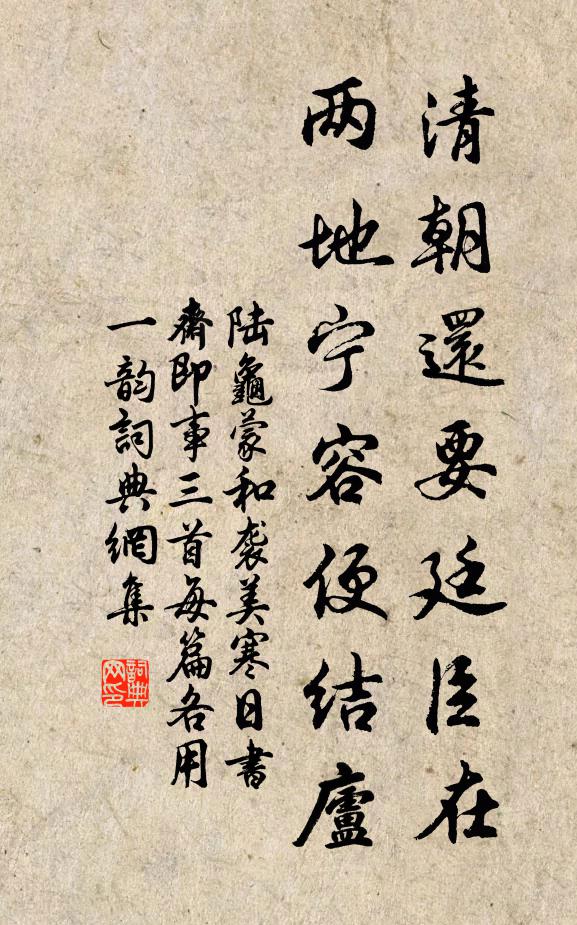 清朝還要廷臣在
两地宁容便结廬
陆龜蒙和袭美寒日書
齋即事三首每篇各用
一韵詞典網集
詞典网印